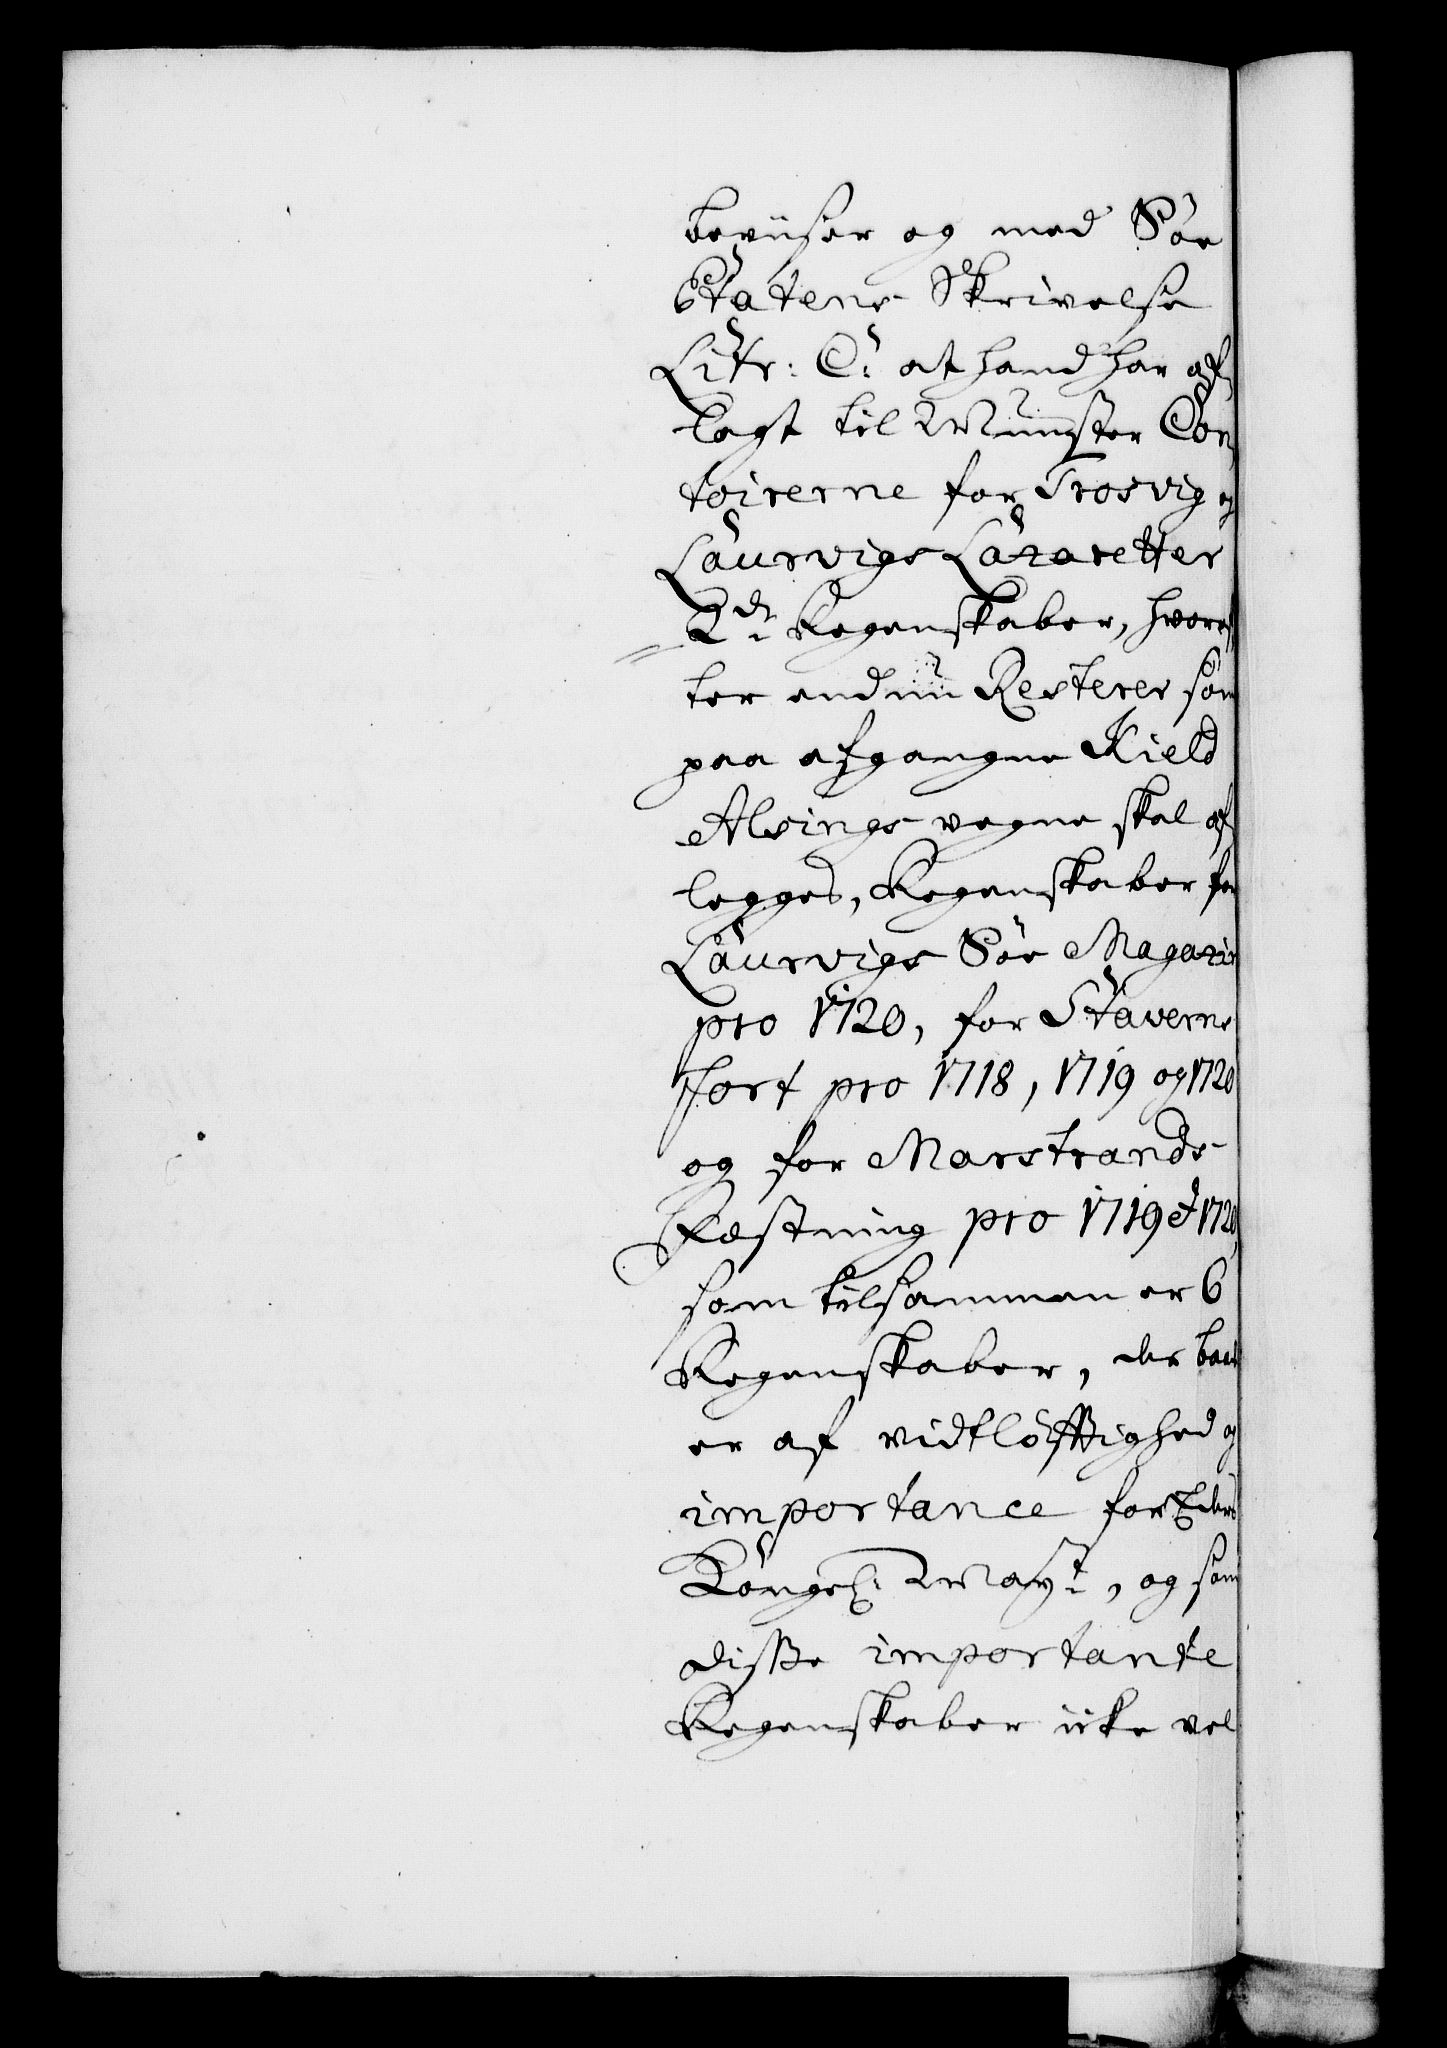 beviiser og med Söe
Etatens Skrivelse
Litr: C: at hand har af
lagt til Munster Con
toirerne for Trosvig og
Laurvigs Lazaretter
2de Regenskaber, hvoref
ter endnu Resterer som
paa afgangne Kield
Alsings vegne skal af
legges, Regenskaber for
Laurvigs Söe Magazin
pro 1720, for Staverns
Fort pro 1718, 1719 og 1720
og for Marstrands
Fæstning pro 1719 et 1720,
som tilsammen er 6
Regenskaber, der baade
er af vidtlöfftighed og
importance for Eders
Kongel: Mayt:, og som
disse importante
Regenskaber icke vel